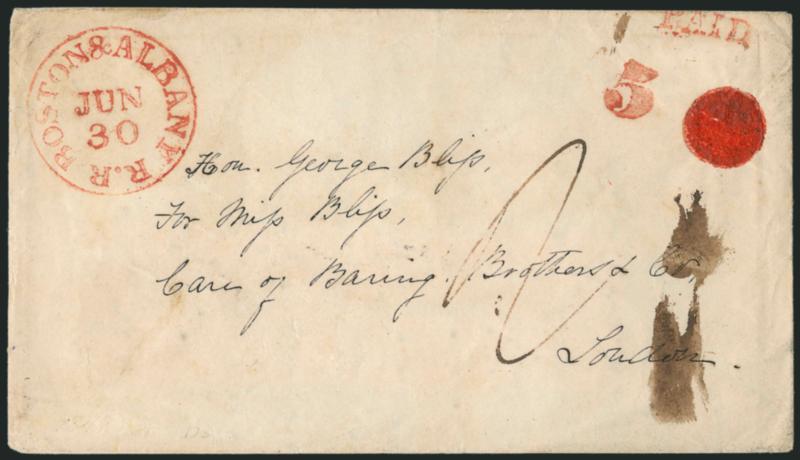 BOSTON & ALBANY R.R
JUN
30
PAID
5
Hon. George Bliss,
For Miss Bliss,
Care of Baring Brothers & Co,
London.